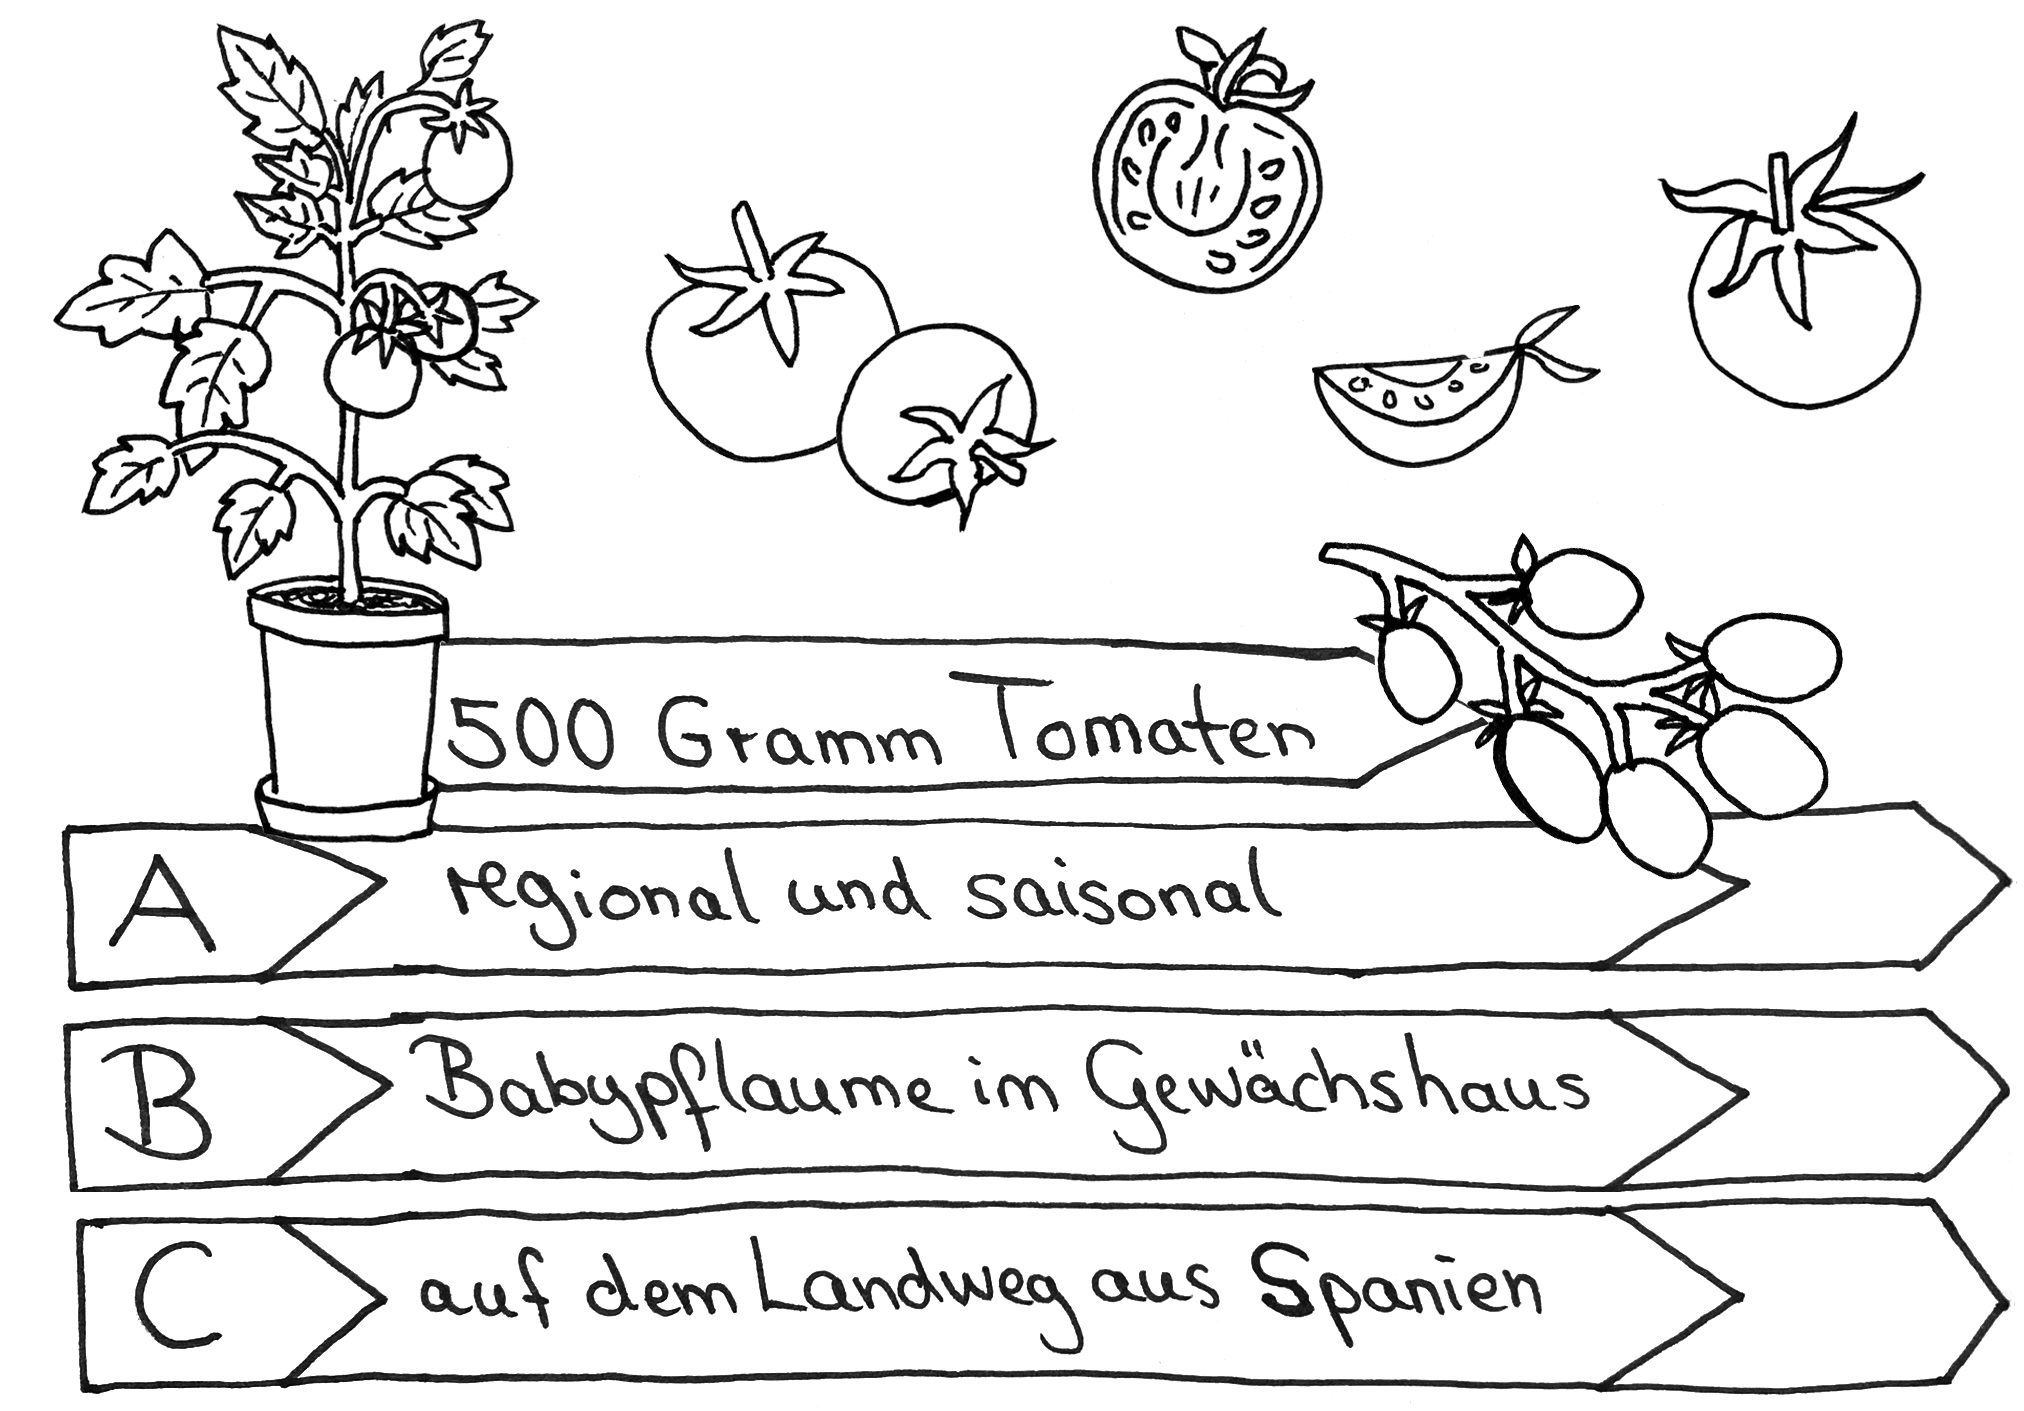 500 Gramm Tomaten
A regional und saisonal
B Babypflaume im Gewächshaus
C auf dem Landweg aus Spanien